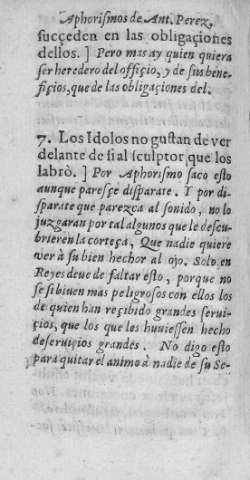 Aphorismos de Ant. Perez,
succeden en las obligaçiones
dellos. ] Pero mas ay quien quiera
ser heredero del offiçio, y de sus bene-
fiçios, que de las obligaçiones del.
7. Los Idolos no gustan de ver
delante de si al sculptor, que los
labrò. ] Por Aphorismo saco esto
aunque paresçe disparate. Y por di-
sparate que parezca al sonido, no lo
juzgaran por tal algunos que le descu-
brieren la corteça, Que nadie quiere
ver à su bien hechor al ojo. Solo en
Reyes deue de faltar esto, porque no
se si biuen mas peligrosos con ellos los
de quien han reçibido grandes serui-
çios, que los que les huuiessen hecho
deseruiçios grandes. No digo esto
para quitar el animo à nadie de su Se-